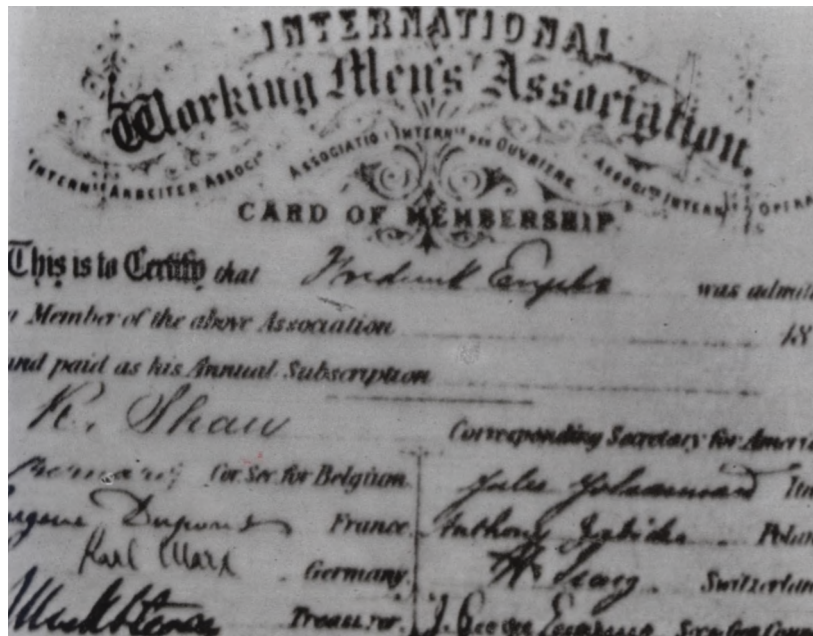 INTERNATIONAL
Working Men's Association.
INTERN^LE ARBEITER ASSOC^N
ASSOCIATIO^N INTERN^LE DES OUVRIERS
ASSOC^NE INTERN^LE OPERA
CARD OF MEMBERSHIP.
This is to Certify that Frederick Engels was admit
a Member of the above Association 18
and paid as his Annual Subscription
R. Shaw Corresponding Secretary for America
Bernard Cor. Sec. for Belgium.
Eugene Dupont France. Anthony Żabicki Polan
Karl Marx Germany. H. Jung. Switzerlan
Treasurer. J. George Eccarius